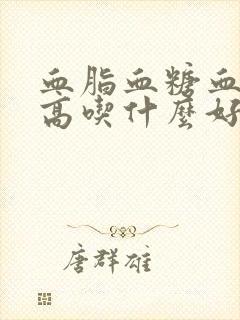 血脂血糖血
高喫什麼好
唐群雄